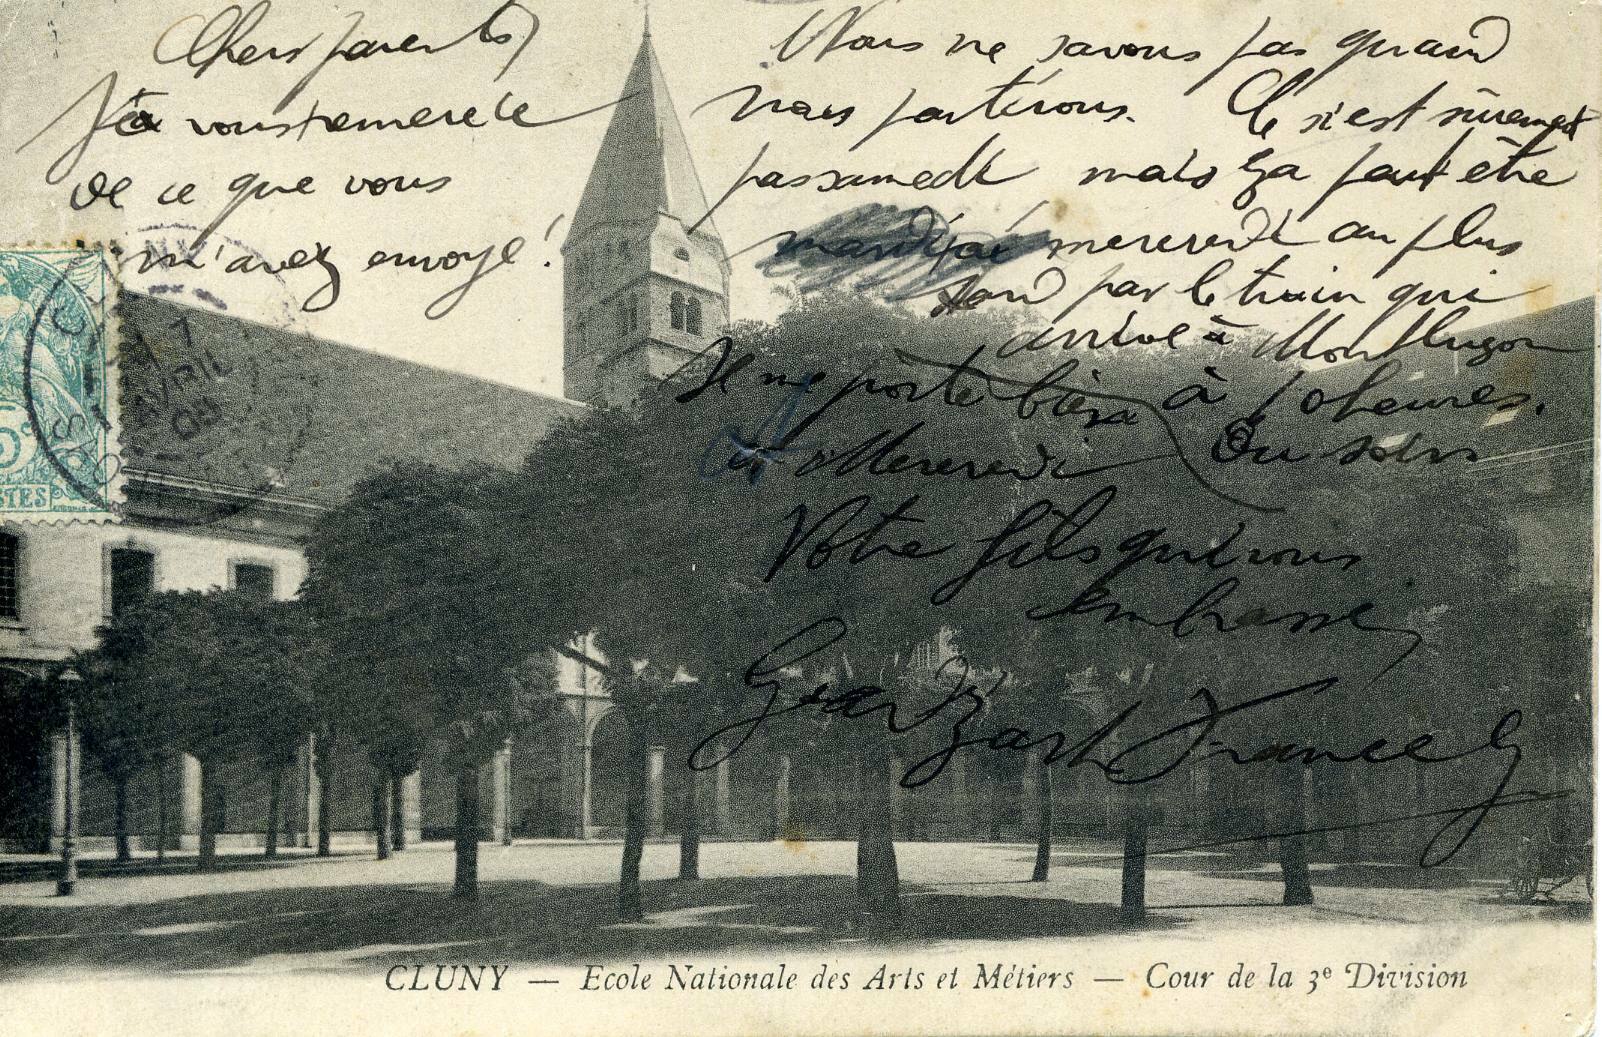 Chers parents,
Je vous remercie
de ce que vous
m'avez envoyé !
Nous ne savons pas quand
nous partirons. Ce n'est sûrement
pas samedi mais ça peut être
mercredi au plus
tard par le train qui
arrive à Montluçon
à 10 heures.
du soir
Je me porte bien
Mercredi
Votre fils qui vous
embrasse,
Francg
CLUNY
AVRIL
5c
POSTES
CLUNY — Ecole Nationale des Arts et Métiers — Cour de la 3e Division